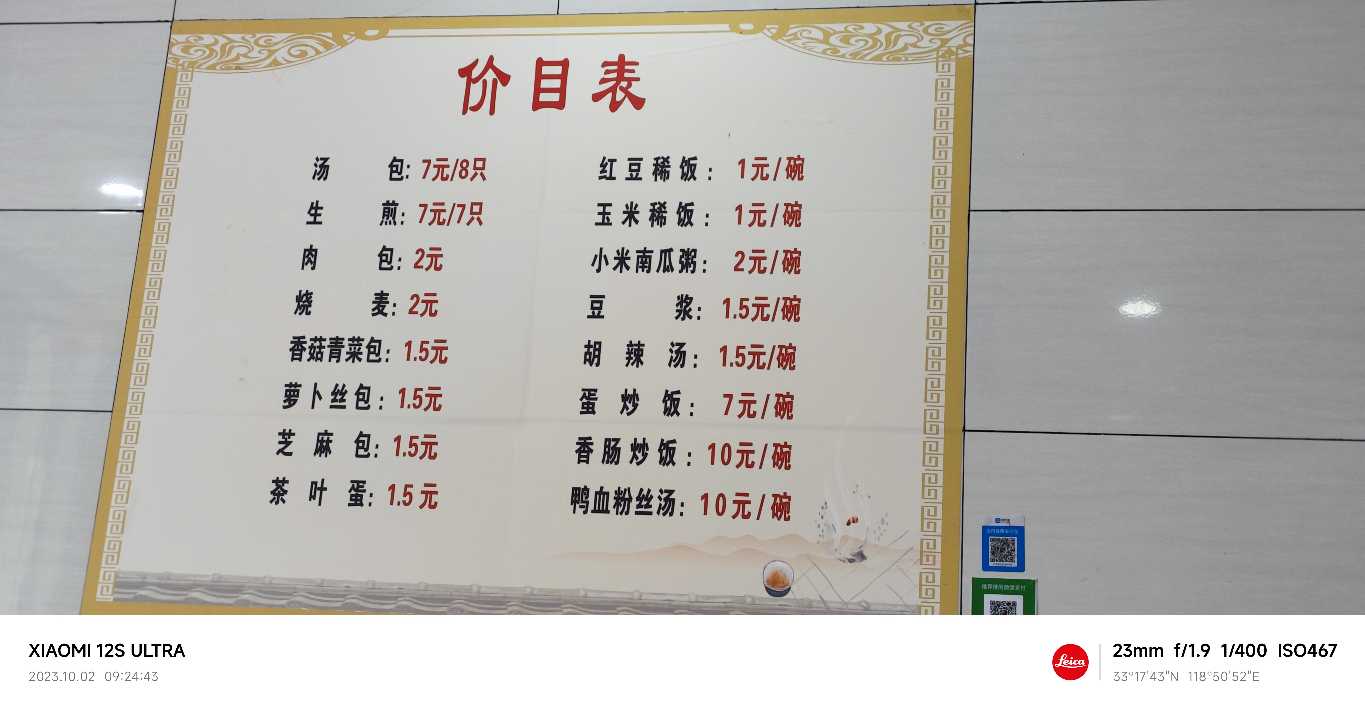 价目表
汤 包: 7元/8只
生 煎: 7元/7只
肉 包: 2元
烧 麦: 2元
香菇青菜包: 1.5元
萝卜丝包: 1.5元
芝麻包: 1.5元
茶叶蛋: 1.5元
红豆稀饭: 1元/碗
玉米稀饭: 1元/碗
小米南瓜粥: 2元/碗
豆 浆: 1.5元/碗
胡辣汤: 1.5元/碗
蛋炒饭: 7元/碗
香肠炒饭: 10元/碗
鸭血粉丝汤: 10元/碗
XIAOMI 12S ULTRA
2023.10.02 09:24:43
Leica
23mm f/1.9 1/400 ISO467
33°17'43"N 118°50'52"E